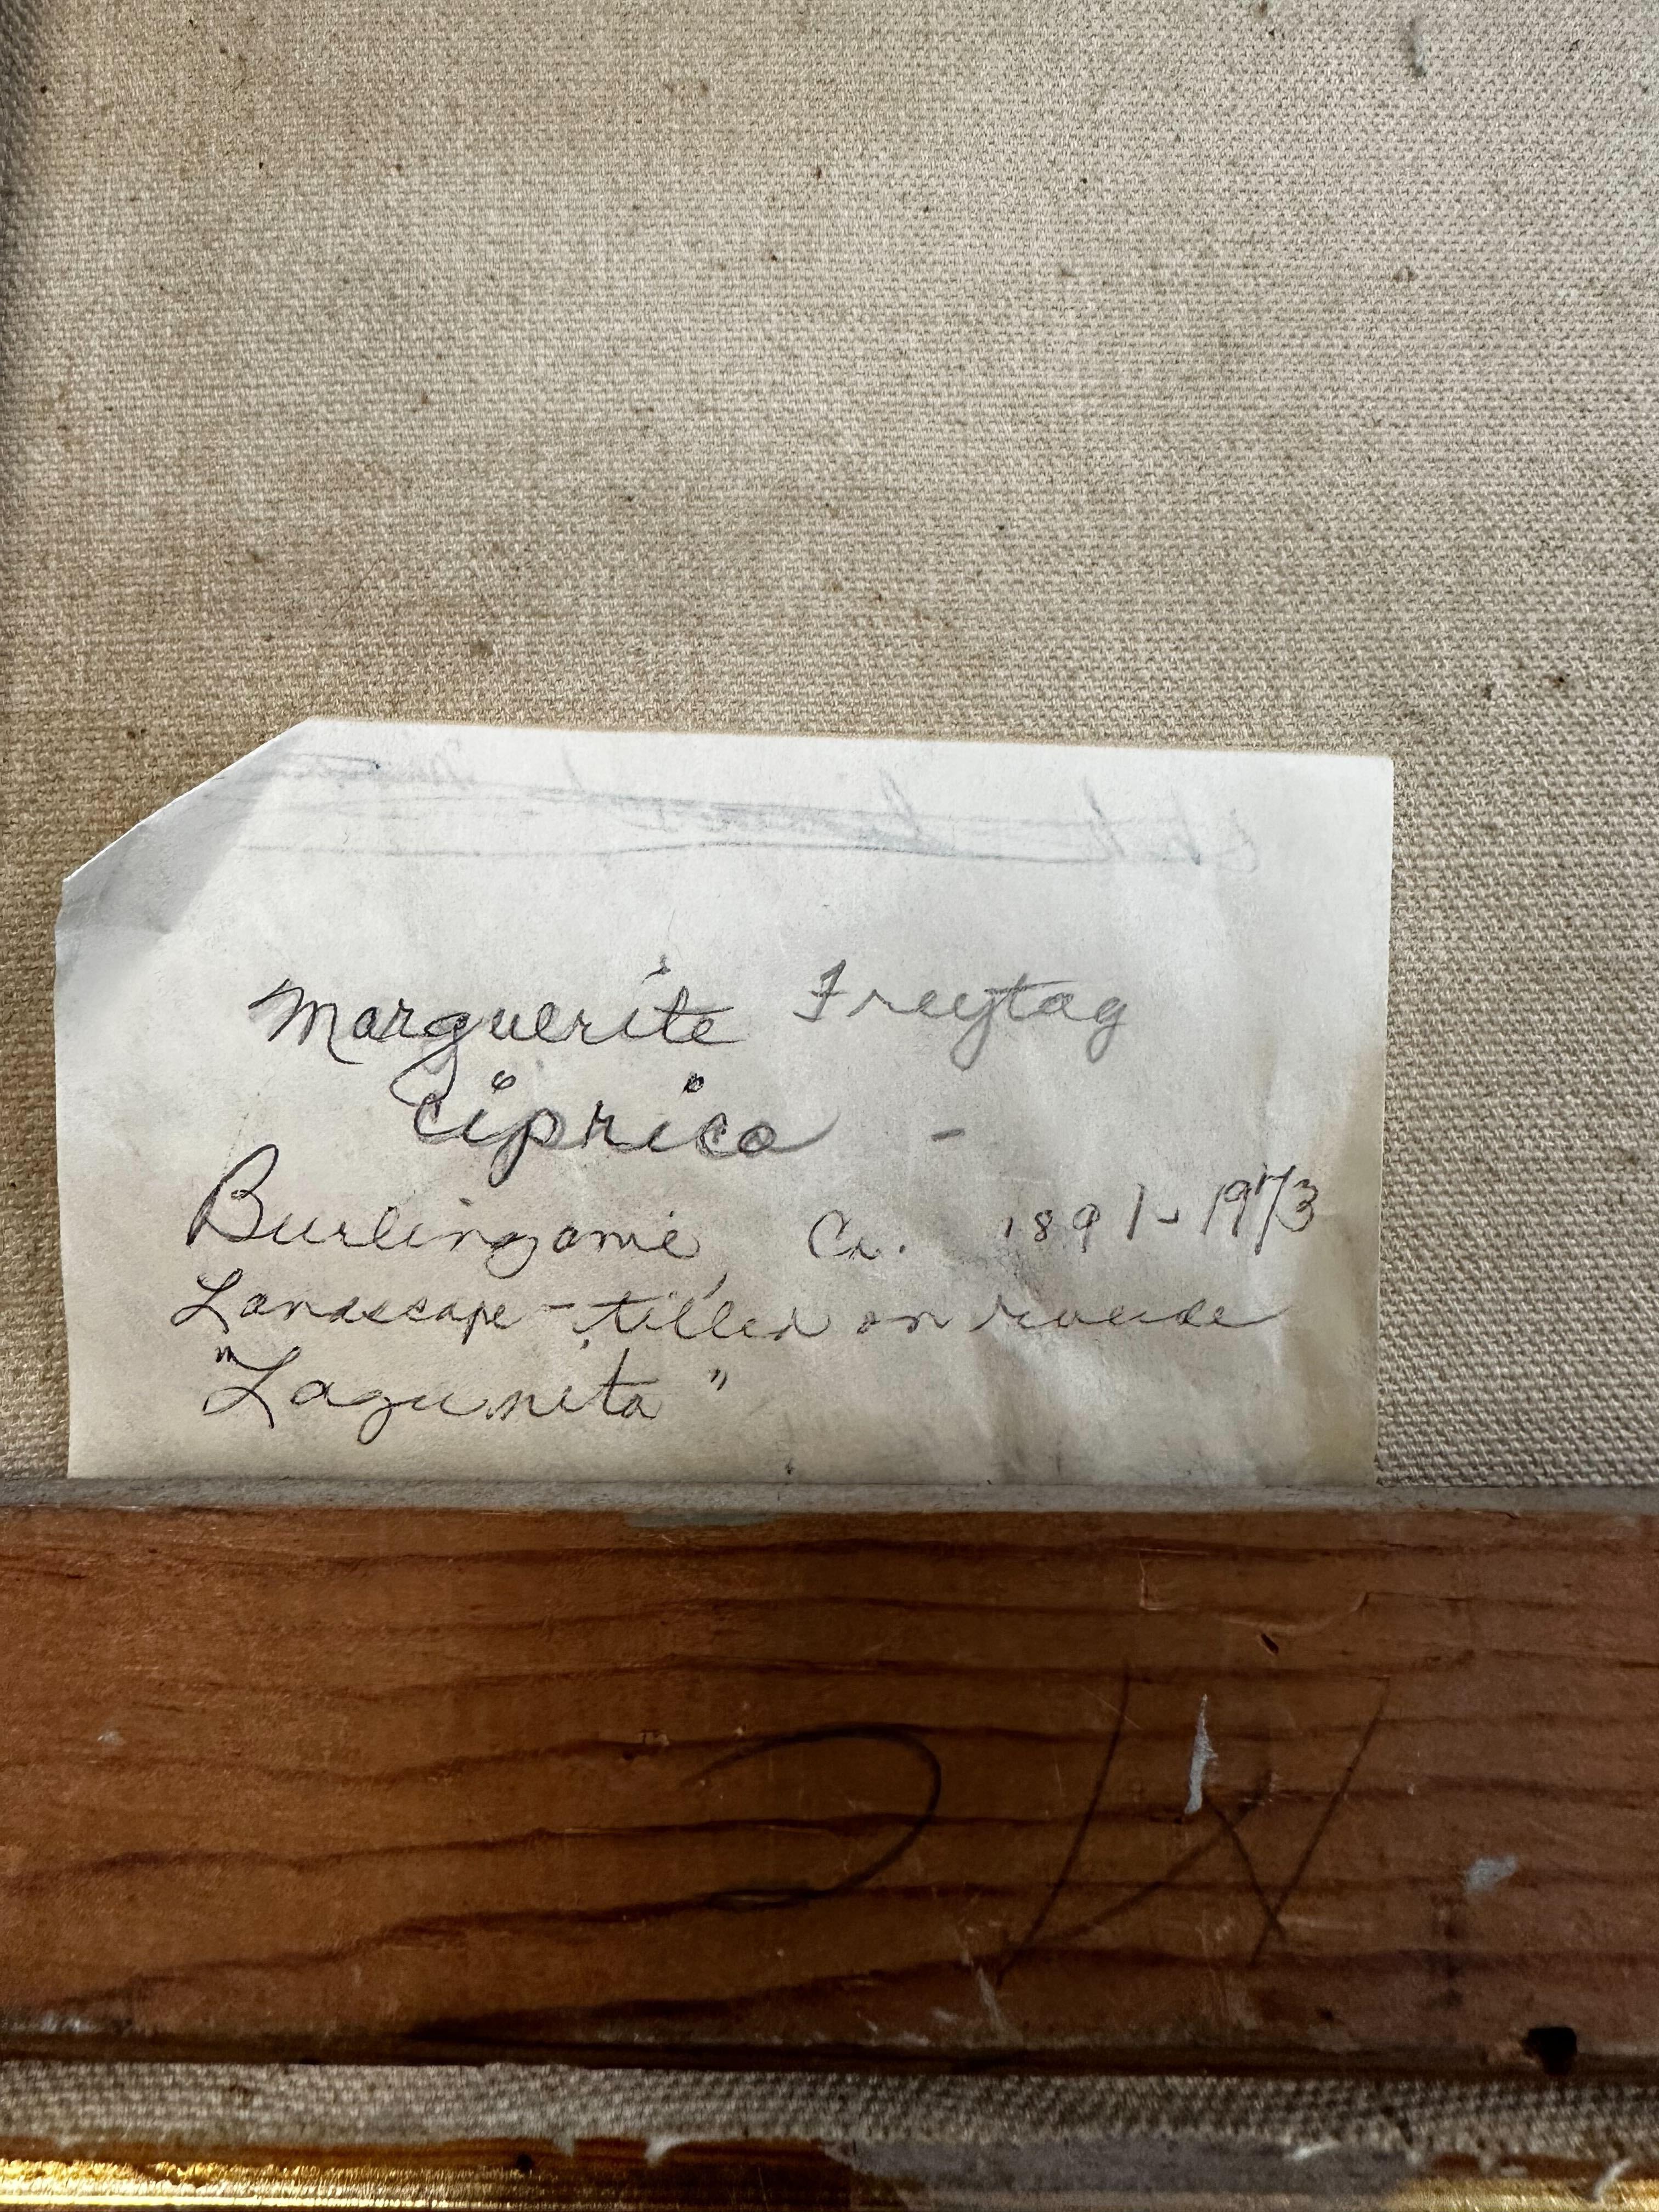 Marguerite Freytag
Ciprico -
Burlingame, Ca. 1891-1973
Landscape - titled on reverse
"Lagunita"